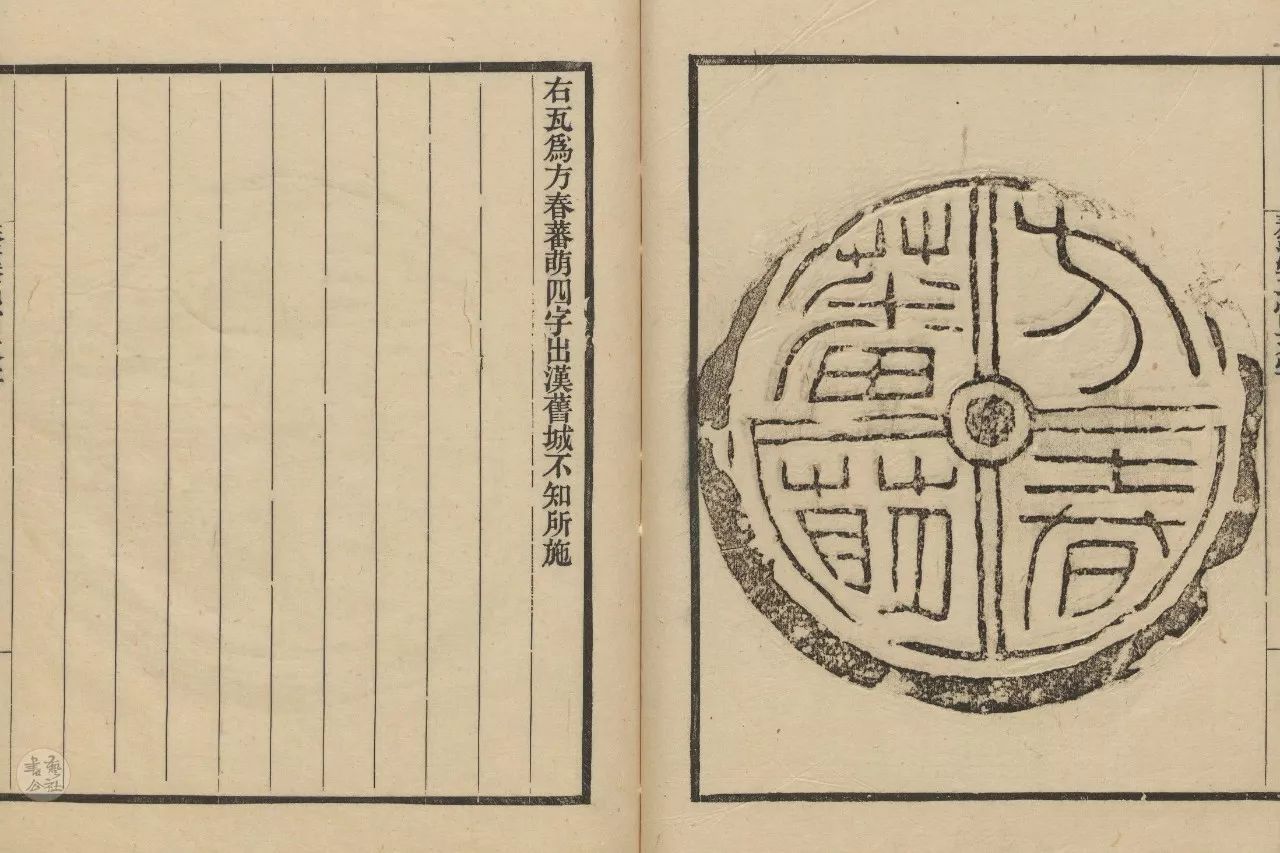 方春
蕃萌
右瓦為方春蕃萌四字出漢舊城不知所施
書藝公社